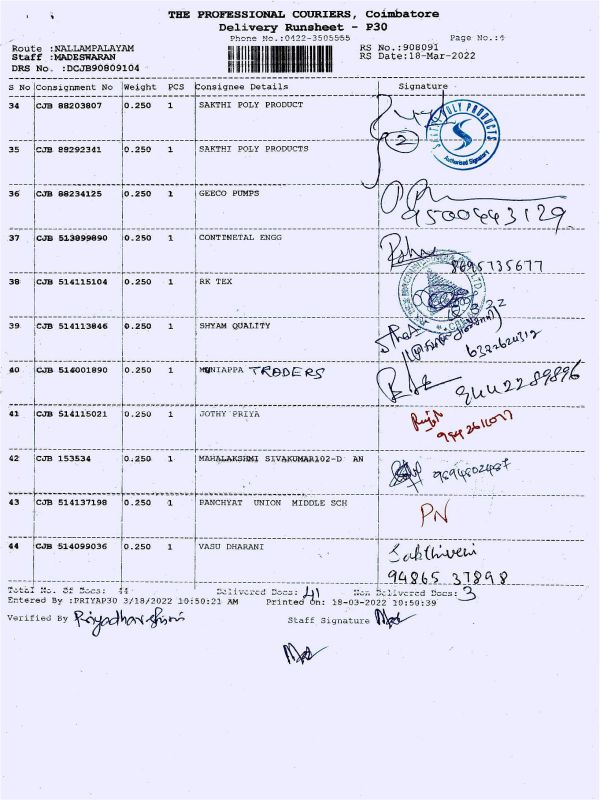 THE PROFESSIONAL COURIERS, Coimbatore
Delivery Runsheet - P30
Phone No.:0422-3505555 Page No.:4
Route :NALLAMPALAYAM RS No.:908091
Staff :MADESWARAN RS Date:18-Mar-2022
DRS No. :DCJB90809104
S No Consignment No Weight PCS Consignee Details Signature
34 CJB 88203807 0.250 1 SAKTHI POLY PRODUCT
35 CJB 88292341 0.250 1 SAKTHI POLY PRODUCTS
Authorised Signatory
36 CJB 88234125 0.250 1 GEECO PUMPS
9500443129
37 CJB 513899890 0.250 1 CONTINETAL ENGG
8695735677
38 CJB 514115104 0.250 1 RK TEX
39 CJB 514113846 0.250 1 SHYAM QUALITY
6382624312
40 CJB 514001890 0.250 1 MUNIAPPA TRADERS
9442289896
41 CJB 514115021 0.250 1 JOTHY PRIYA
42 CJB 153534 0.250 1 MAHALAKSHMI SIVAKUMAR102-D AN
9894802487
43 CJB 514137198 0.250 1 PANCHYAT UNION MIDDLE SCH
PN
44 CJB 514099036 0.250 1 VASU DHARANI
Sakthiveni
94865 37898
Total No. Of Docs: 44 Delivered Docs: 41 Non Delivered Docs: 3
Entered By :PRIYAP30 3/18/2022 10:50:21 AM Printed On: 18-03-2022 10:50:39
Verified By Priyadharshini Staff Signature